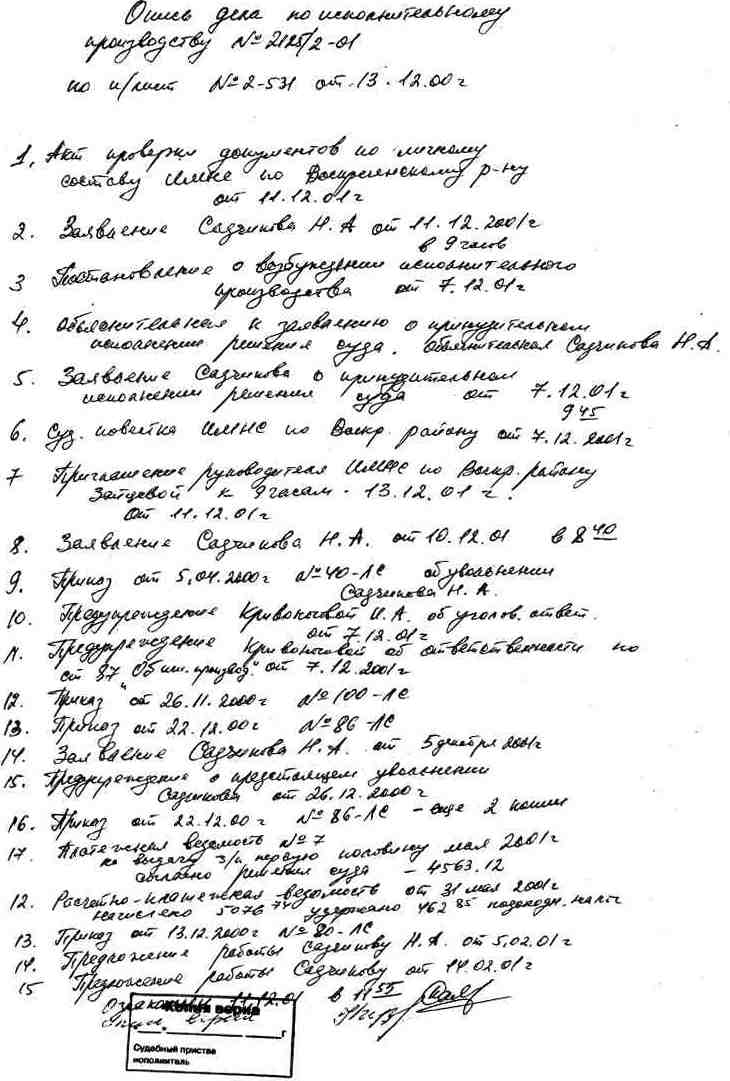 Опись дела по исполнительному
производству № 2125/2-01
по и/лист № 2-531 от 13.12.00 г
1. Акт проверки документов по личному
составу ИМНС по Воскресенскому р-ну
от 11.12.01 г
2. Заявление Садчикова Н.А от 11.12.2001 г
в 9 часов
3 Постановление о возбуждении исполнительного
производства от 7.12.01 г
4. объяснительная к заявлению о принудительном
исполнении решения суда. объяснительная Садчикова Н.А.
5. Заявление Садчикова о принудительном
исполнении решения суда от 7.12.01 г
9 45
6. Суд. повестка ИМНС по Воскр. району от 7.12.2001 г
7 Приглашение руководителя ИМНС по Воскр. району
Зайцевой к 9 часам - 13.12.01 г.
От 11.12.01 г
8. Заявление Садчикова Н.А. от 10.12.01 в 8 40
9. Приказ от 5.04.2000 г № 40-ЛС об увольнении
Садчикова Н.А.
10. Предупреждение Кривоноговой И.А. об уголов. ответ.
от 7.12.01 г
11. Предупреждение Кривоноговой об ответственности по
ст 87 "Об исп. производ." от 7.12.2001 г
12. Приказ от 26.11.2000 г № 100-ЛС
13. Приказ от 22.12.00 г № 86-ЛС
14. Заявление Садчикова Н.А. от 5 декабря 2001 г
15. Предупреждение о предстоящем увольнении
Садчикова от 26.12.2000 г
16. Приказ от 22.12.00 г № 86-ЛС - еще 2 копии
17. Платежная ведомость № 7
на выдачу з/п первую половину мая 2001 г
согласно решения суда - 4563.12
12. Расчетно-платежная ведомость от 31 мая 2001 г
начислено 5076 74 удержано 462 85 подоходн. налог
13. Приказ от 13.12.2000 г № 80-ЛС
14. Предложение работы Садчикову Н.А. от 5.02.01 г
15 Предложение работы Садчикову от 14.02.01 г
Ознакомлен 11.12.01 в 11 55
Копия верна
г
Судебный пристав
исполнитель